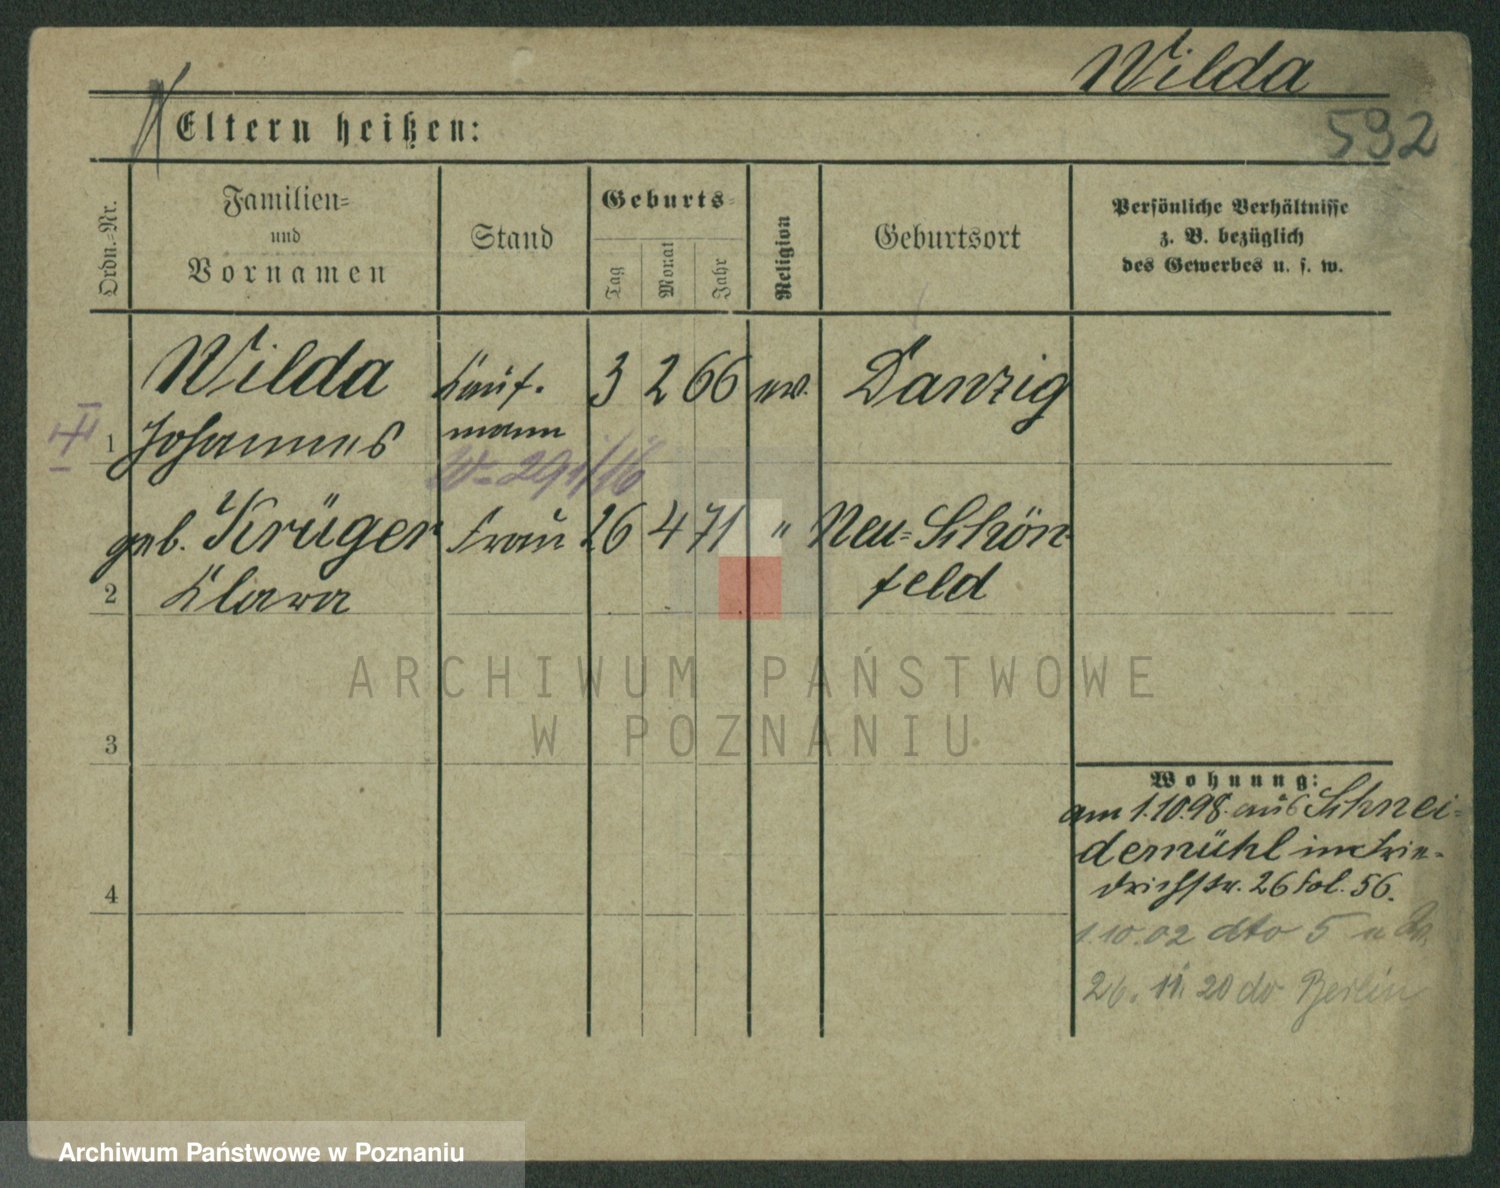 Wilda
592
Eltern heißen:
Ordn.-Nr.
Familien-
und
Vornamen
Stand
Geburts-
Tag
Monat
Jahr
Religion
Geburtsort
Persönliche Verhältnisse
z. B. bezüglich
des Gewerbes u. s. w.
Wilda Kauf- 3 2 66 ev. Danzig
1 Johannes mann
geb. Krüger Frau 26 4 71 " Neu-Schön-
2 Clara feld
ARCHIWUM PAŃSTWOWE
W POZNANIU
3
Wohnung:
am 1.10.98. aus Schnei-
demühl in Frie-
4
drichstr. 26 Fol. 56.
1.10.02 dto 5
26. 11. 20 do Berlin
Archiwum Państwowe w Poznaniu